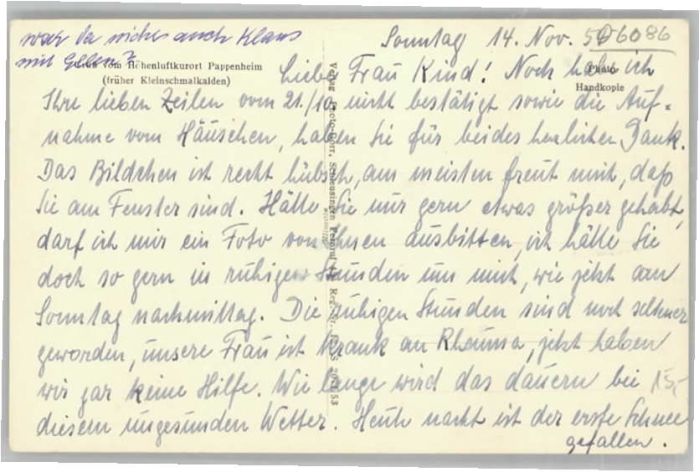 war da nicht auch Klaus
mit Ellen?
Sonntag 14. Nov. 5
506086
Höhenluftkurort Pappenheim
(früher Kleinschmalkalden)
Photo
Handkopie
Liebe Frau Kind! Noch habe ich
Ihre lieben Zeilen vom 21./10 nicht bestätigt sowie die Auf-
nahme vom Häuschen, haben Sie für beides herzlichen Dank.
Das Bildchen ist recht hübsch, am meisten freut mich, daß
Sie am Fenster sind. Hätte Sie nur gern etwas größer gehabt,
darf ich mir ein Foto von Ihnen ausbitten, ich hätte Sie
doch so gern in ruhigen Stunden um mich, wie jetzt am
Sonntag nachmittag. Die ruhigen Stunden sind noch seltener
geworden, unsere Frau ist krank an Rheuma, jetzt haben
wir gar keine Hilfe. Wie lange wird das dauern bei
15,-
diesem ungesunden Wetter. Heute nacht ist der erste Schnee
gefallen.